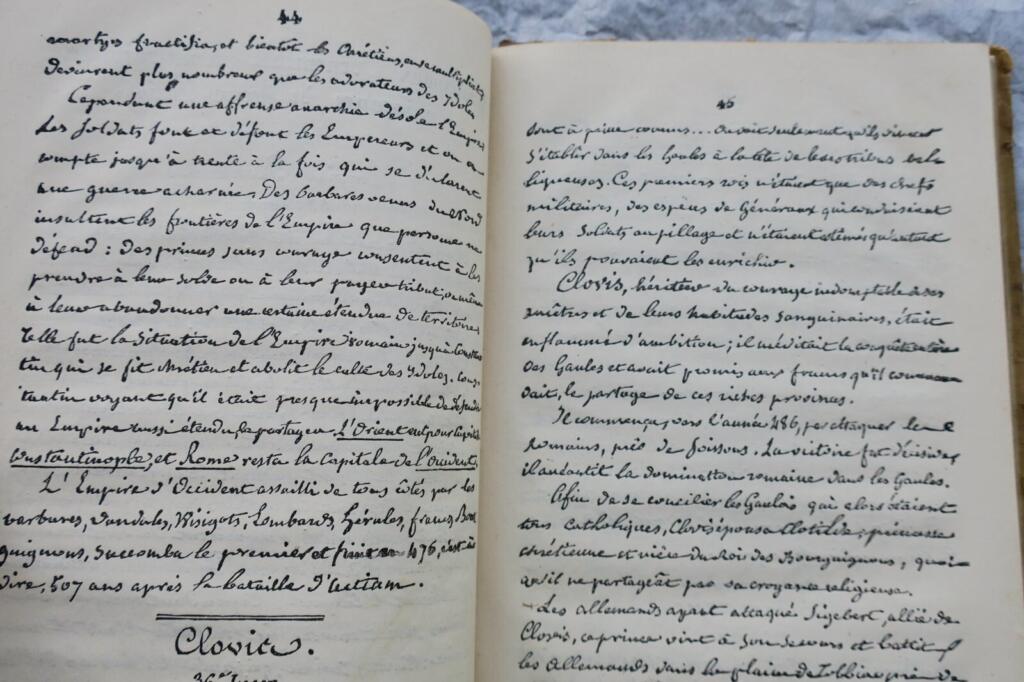 44
martyrs fructifia, et bientôt les Chrétiens, en se multipliant,
devinrent plus nombreux que les adorateurs des Idoles
Cependant une affreuse anarchie désole l'Empire,
Les Soldats font et défont les Empereurs et on en
compte jusqu'à trente à la fois qui se déclarent
une guerre acharnée. Des barbares venus du Nord
insultent les frontières de l'Empire que personne ne
défend : des princes sans courage consentent à les
prendre à leur solde ou à leur payer tribut, ou même
à leur abandonner une certaine étendue de territoire.
Telle fut la Situation de l'Empire romain jusqu'à Constan
tin qui se fit chrétien et abolit le culte des Idoles. Cons
tantin voyant qu'il était presque impossible de défendre
un Empire aussi étendu, le partagea L'Orient eut pour capitale
Constantinople, et Rome resta la Capitale de l'Occident,
L'Empire d'Occident assailli de tous côtés par les
barbares, Vandales, Visigots, Lombards, Hérules, francs, Bour
guignons, Succomba le premier et 476, c'est à
dire, 507 ans après la bataille d'Actium.
Clovis.
45
sont à peine connus... On voit seulement qu'ils vinrent
S'établir dans les Gaules à la tête de leurs tribus bel
liqueuses. Ces premiers rois n'étaient que des chefs
militaires, des espèces de Généraux qui conduisaient
leurs Soldats au pillage et n'étaient estimés qu'autant
qu'ils pouvaient les enrichir.
Clovis, héritier du courage indomptable de ses
ancêtres et de leurs habitudes Sanguinaires, était
enflammé d'ambition ; il méditait la conquête entière
des Gaules et avait promis aux francs qu'il
dait, le partage de ces riches provinces.
Il commença, vers l'année 486, par attaquer les
Romains, près de Soissons. La victoire fut décisive,
il anéantit la domination romaine dans les Gaules.
Afin de se concilier les Gaulois qui alors étaient
tous Catholiques, Clovis épousa Clotilde, princesse
chrétienne et nièce du Roi des Bourguignons, quoi
qu'il ne partageât pas sa croyance religieuse.
Les allemands ayant attaqué Sigebert, allié de
Clovis, ce prince vint à Son Secours et battit
les Allemands dans la plaine de Tolbiac près de